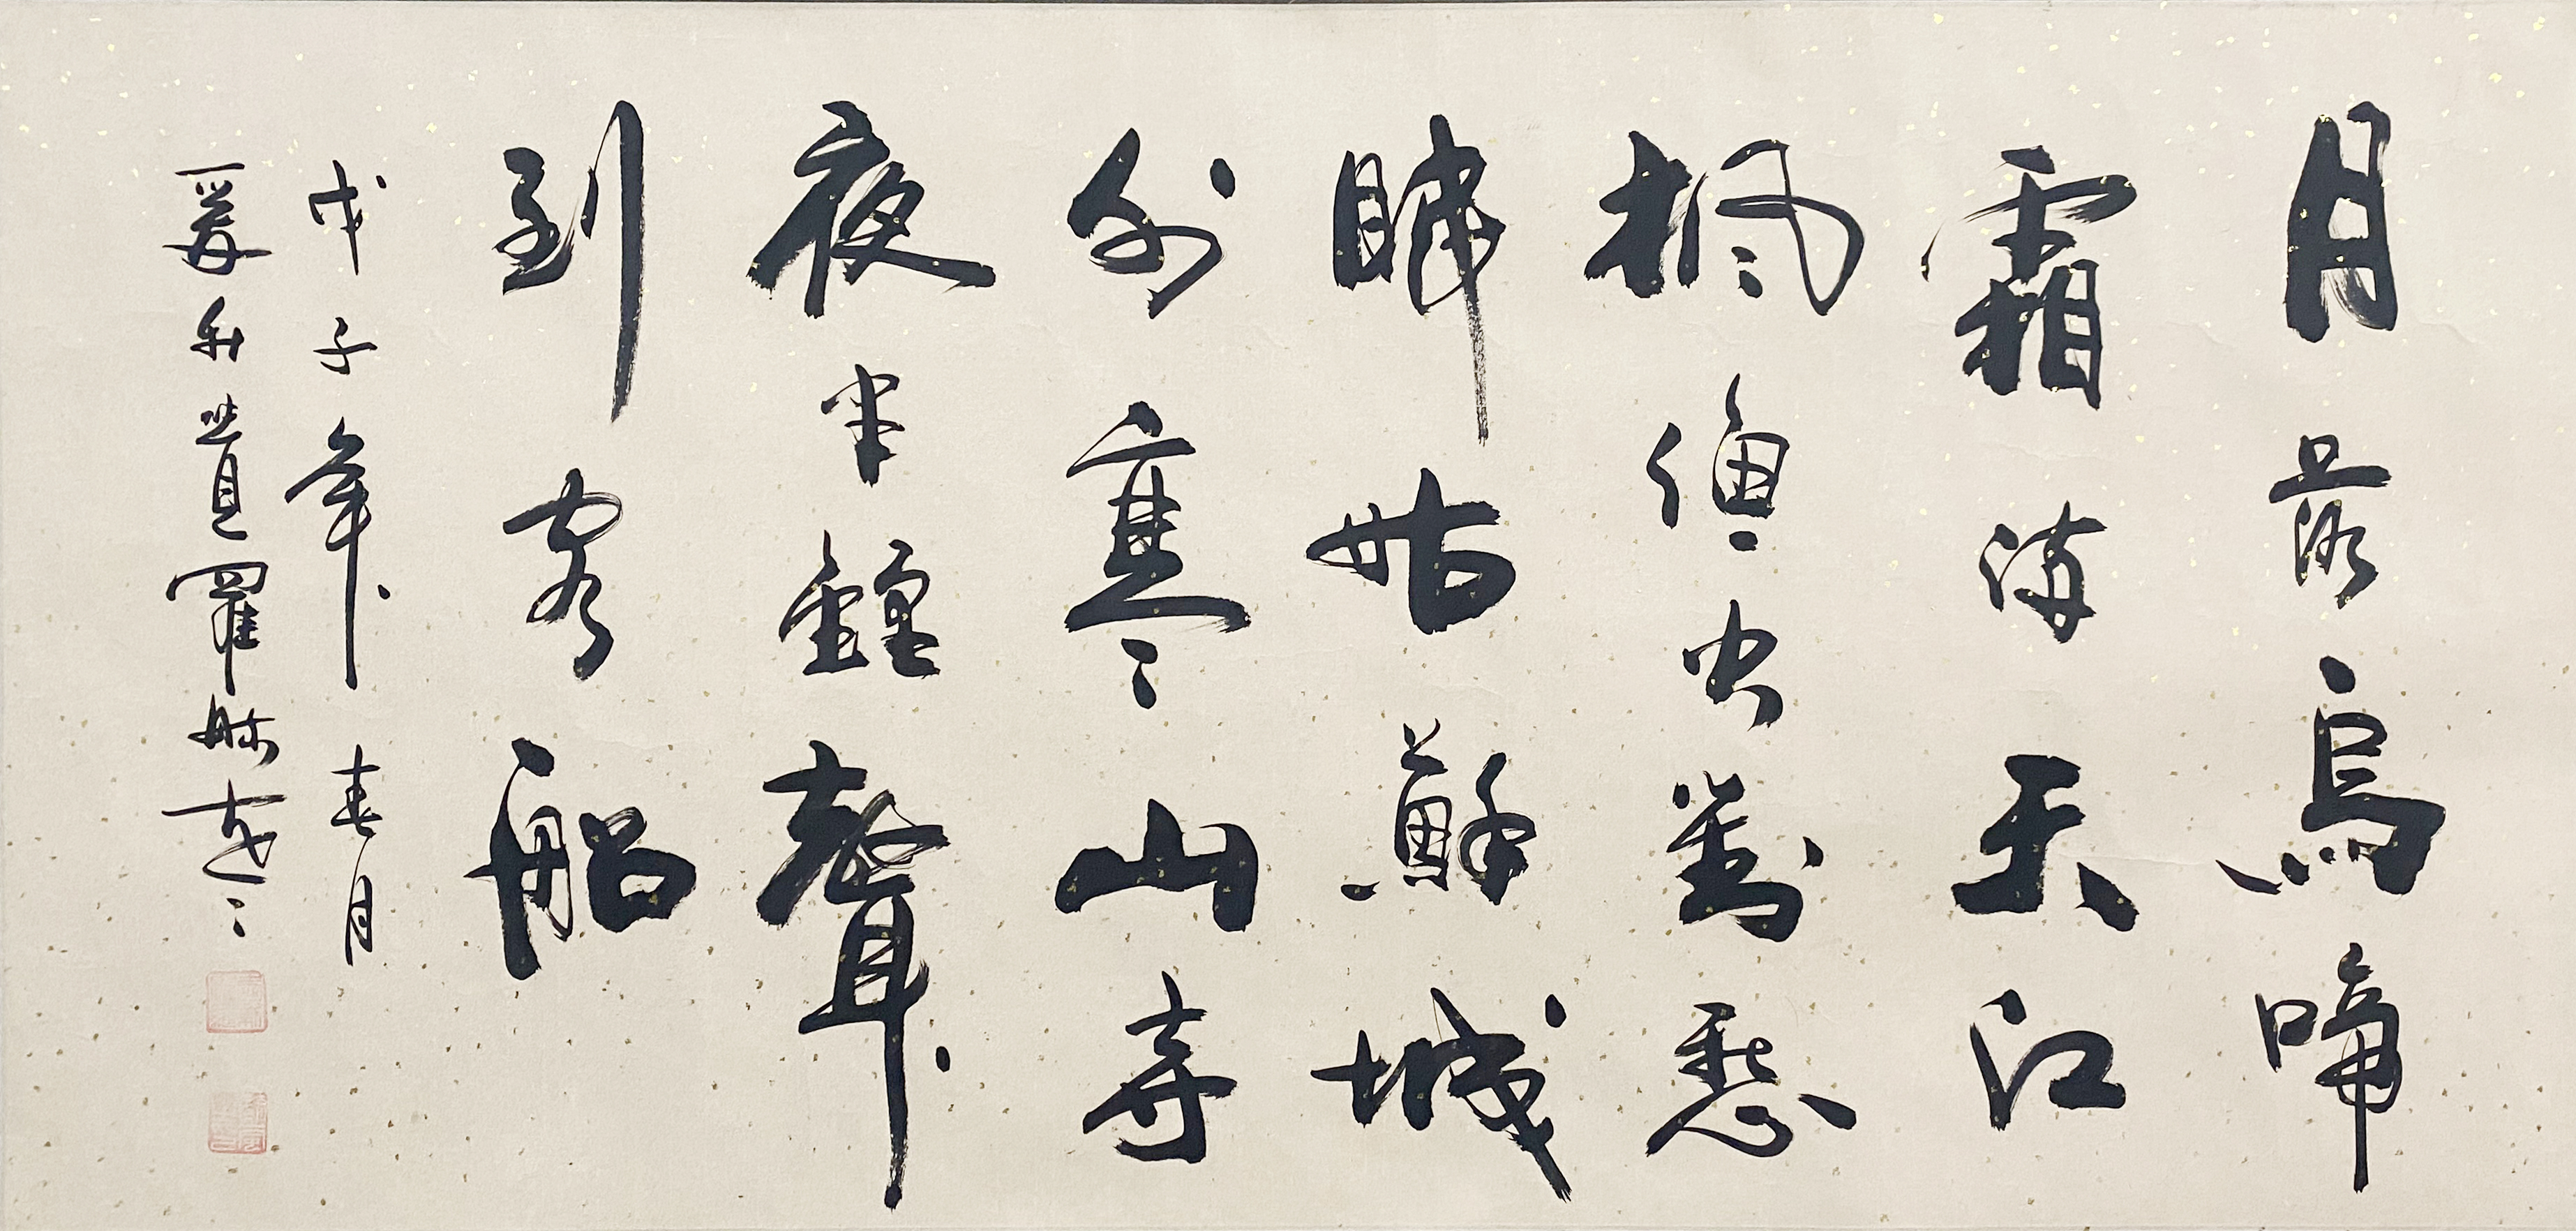 月落烏啼
霜滿天江
楓漁火對愁
眠姑蘇城
外寒山寺
夜半鐘聲
到客船
戊子年春月
羅